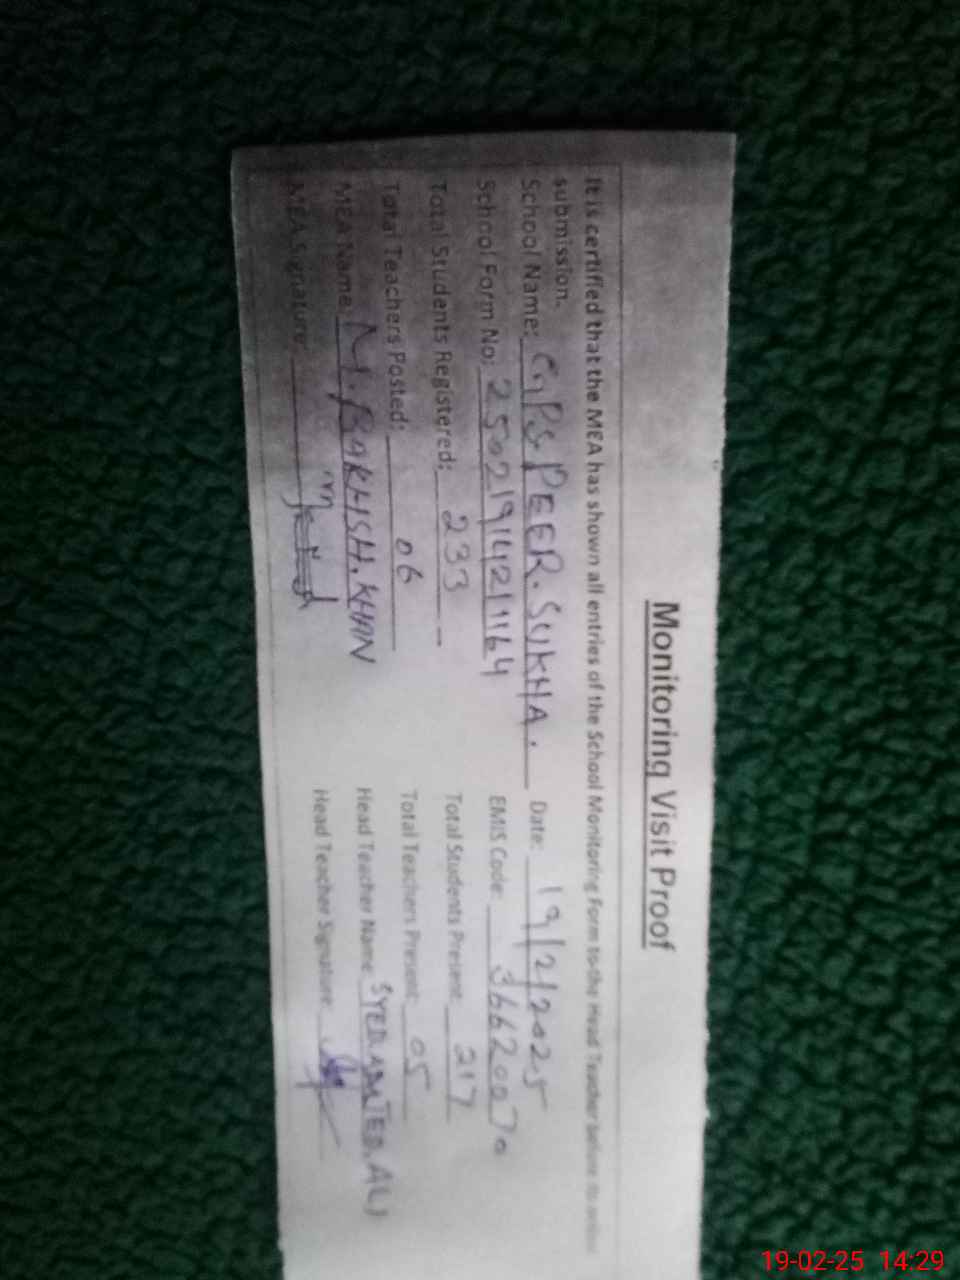 Monitoring Visit Proof
It is certified that the MEA has shown all entries of the School Monitoring Form to the Head Teacher before its online
submission.
School Name: GPS PEER.SUKHA. Date: 19/2/2025
School Form No: 25021914211164 EMIS Code: 36620070
Total Students Registered: 233 Total Students Present: 217
Total Teachers Posted: 06 Total Teachers Present: 05
MEA Name: M.BAKHSH.KHAN Head Teacher Name: SYED ALI
MEA Signature: Head Teacher Signature:
19-02-25 14:29